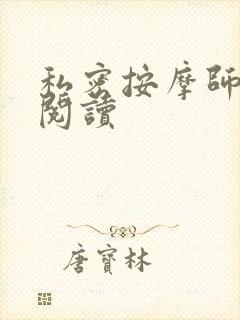 私密按摩師
閱讀
唐寶林